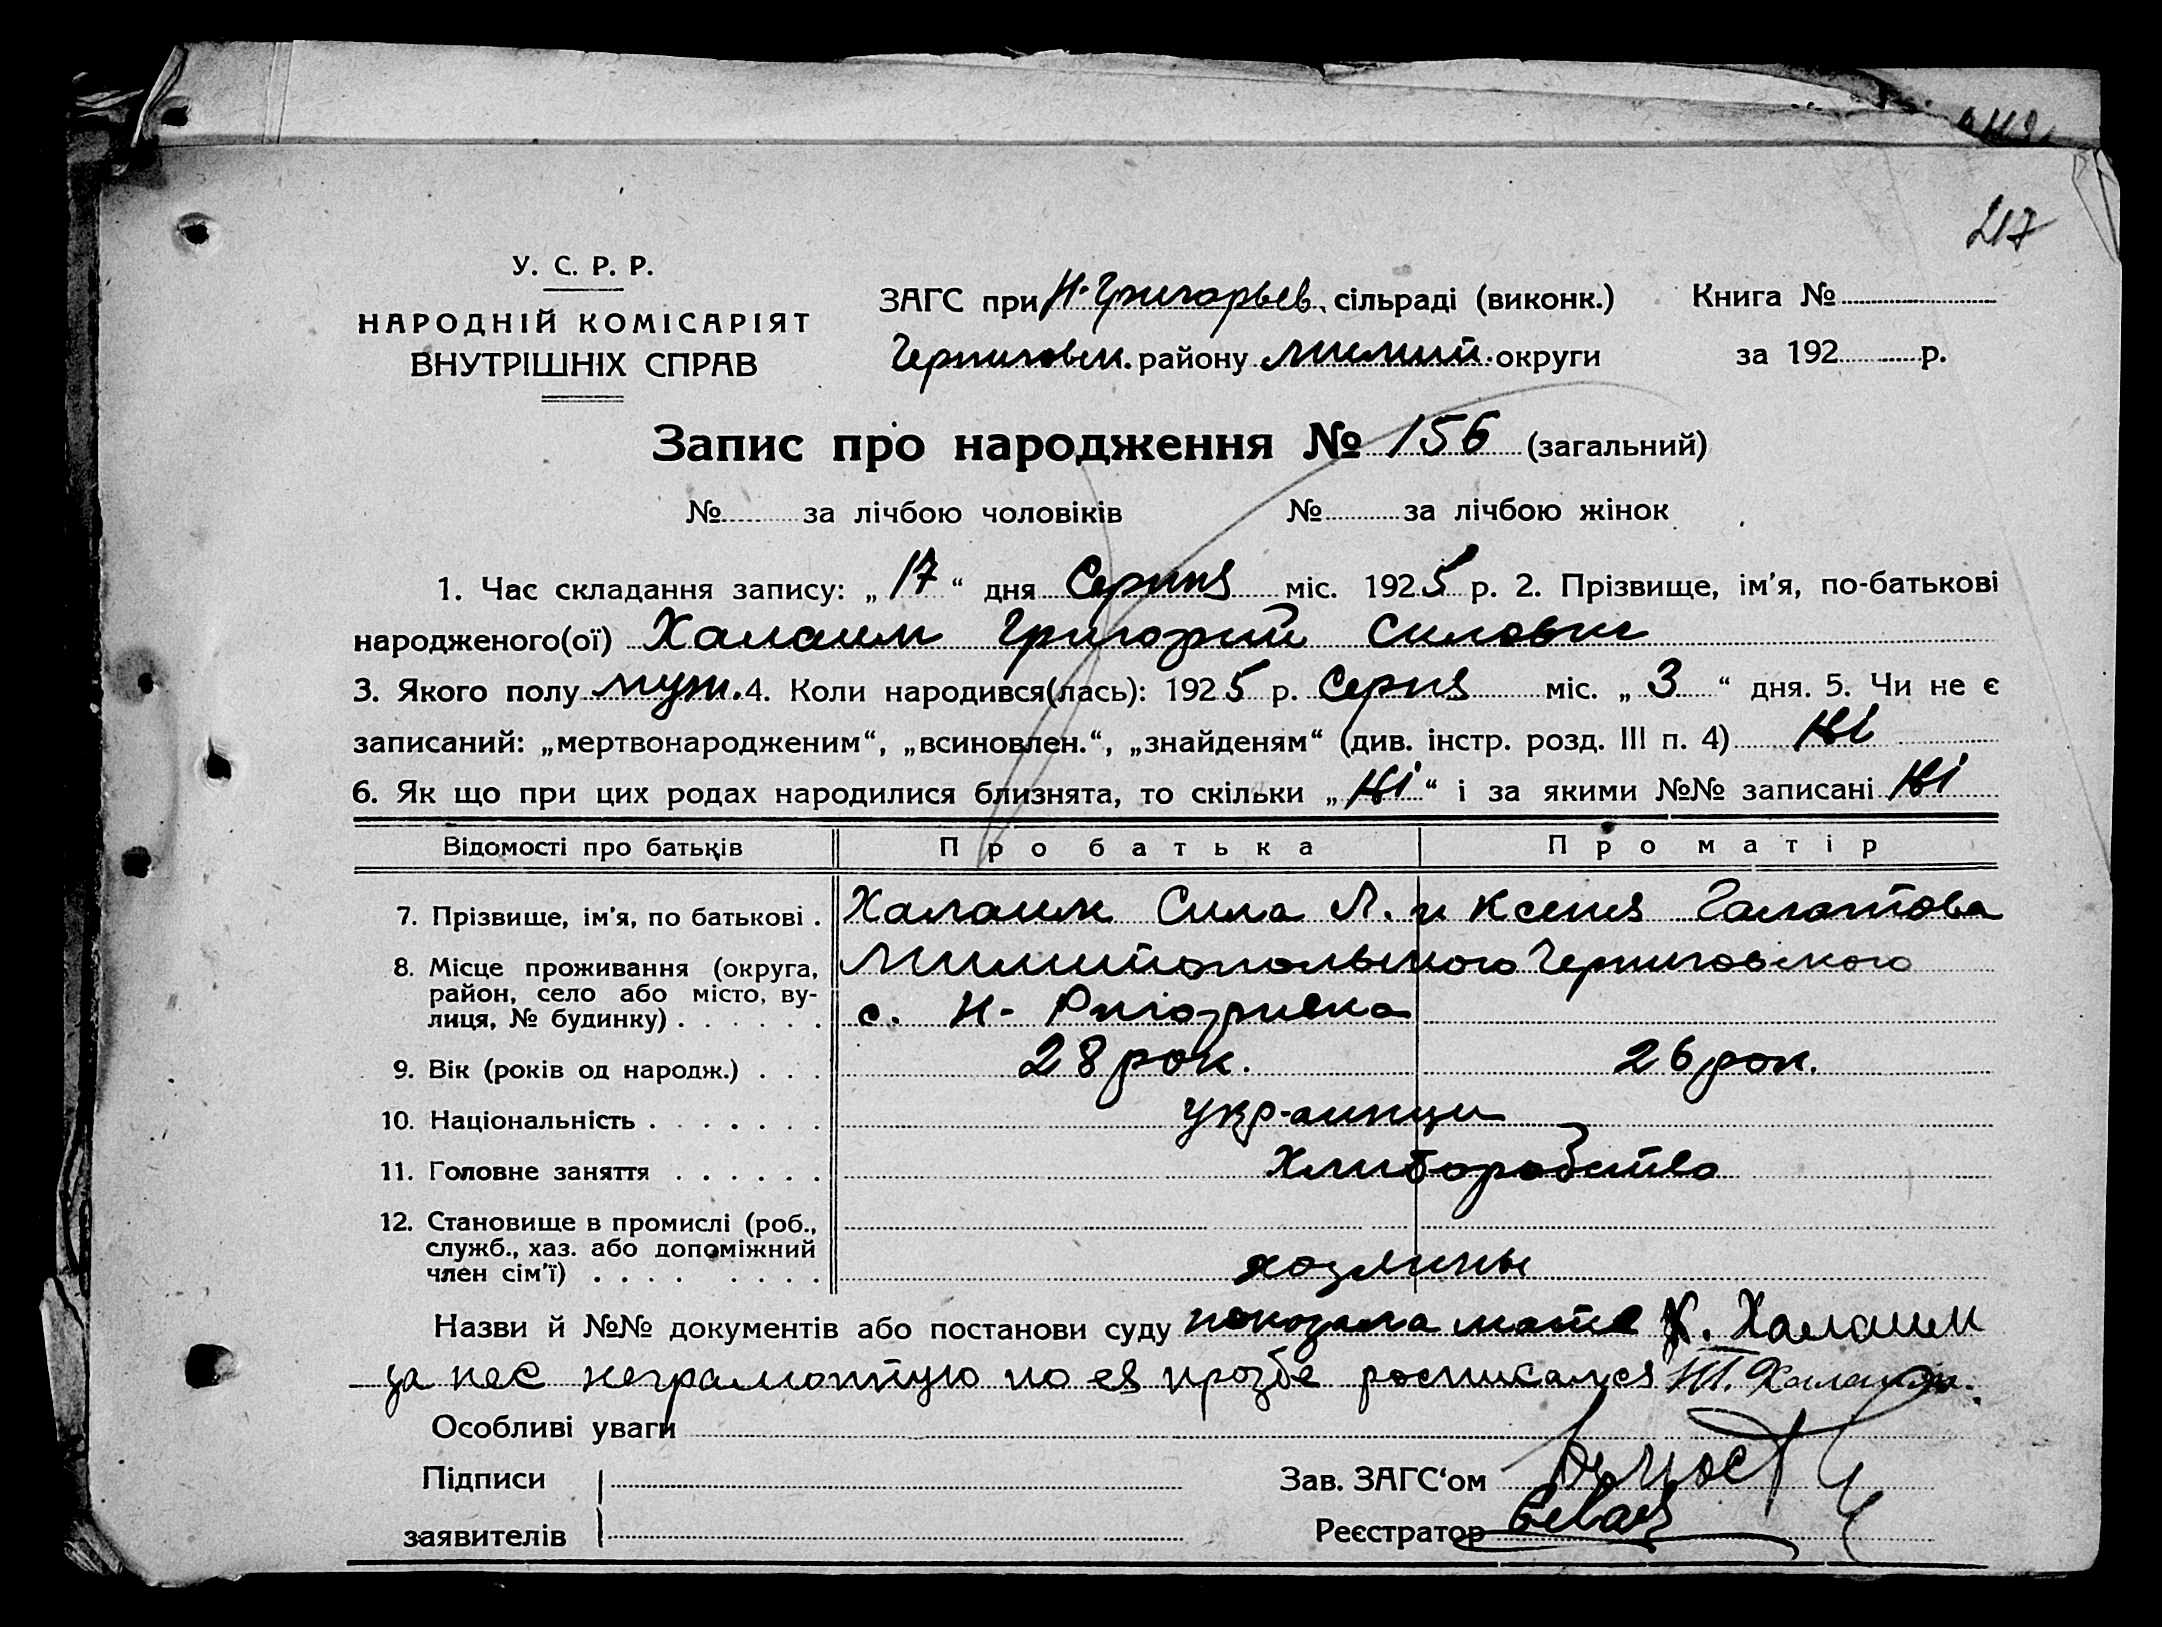 217
У. С. Р. Р.
НАРОДНІЙ КОМІСАРІЯТ
ВНУТРІШНІХ СПРАВ
ЗАГС при Н-Григорьев. сільраді (виконк.)
Книга №
Черниговск. району Милит. округи
за 192 р.
Запис про народження № 156 (загальний)
№ за лічбою чоловіків № за лічбою жінок
1. Час складання запису: „ 17 “ дня Серпня міс. 1925 р. 2. Прізвище, ім’я, по-батькові
народженого(ої) Халаим Григорий Силович
3. Якого полу муж. 4. Коли народився(лась): 1925 р. Серпня міс. „ 3 “ дня. 5. Чи не є
записаний: „мертвонародженим“, „всиновлен.“, „знайденям“ (див. інстр. розд. III п. 4) Ні
6. Як що при цих родах народилися близнята, то скільки „ Ні “ і за якими №№ записані Ні
Відомості про батьків Про батька Про матір
7. Прізвище, ім’я, по батькові . Халаим Сила Л. и Ксения Галатова
8. Місце проживання (округа, Милитопольского Черниговского
район, село або місто, ву-
лиця, № будинку) . . . . . . с. Н-
9. Вік (років од народж.) . . . 28 рок. 26 рок.
10. Національність . . . . . . . укр-аинци
11. Головне заняття . . . . . . Хлиборобство
12. Становище в промислі (роб.,
служб., хаз. або допоміжний
член сім’ї) . . . . . . . . хозяины
Назви й №№ документів або постанови суду показала мате К. Халаим
за нее неграмотную по ея прозбе росписался Халаим.
Особливі уваги
Підписи
заявителів
Зав. ЗАГС‘ом
Реєстратор